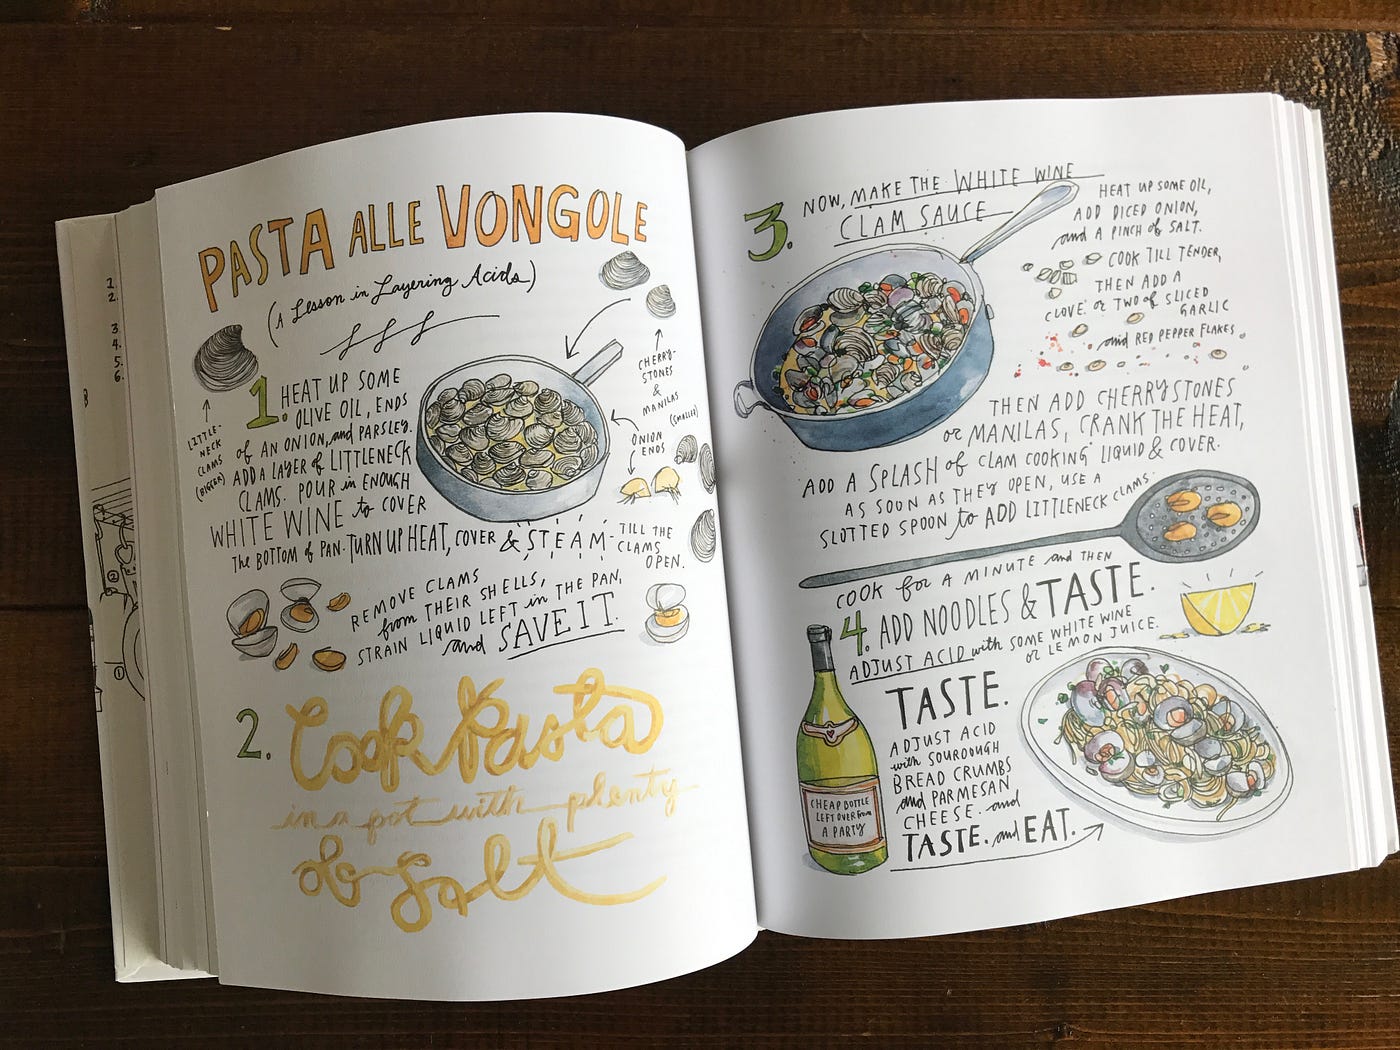 PASTA ALLE VONGOLE
(A Lesson in Layering Acids)
LITTLE-
NECK
CLAMS
(BIGGER)
1. HEAT UP SOME
OLIVE OIL, ENDS
of AN ONION, and PARSLEY.
ADD A LAYER of LITTLENECK
CLAMS. POUR in ENOUGH
WHITE WINE to COVER
THE BOTTOM of PAN. TURN UP HEAT, COVER & STEAM- TILL THE
CLAMS
OPEN.
CHERRY-
STONES
&
MANILAS
(SMALLER)
ONION
ENDS
REMOVE CLAMS
from THEIR SHELLS,
STRAIN LIQUID LEFT in THE PAN,
and SAVE IT.
2. Cook Pasta
in a pot with plenty
of Salt
3. NOW, MAKE THE WHITE WINE
CLAM SAUCE
HEAT UP SOME OIL,
ADD DICED ONION,
and A PINCH of SALT.
COOK TILL TENDER,
THEN ADD A
CLOVE or TWO of SLICED
GARLIC
and RED PEPPER FLAKES
THEN ADD CHERRYSTONES
or MANILAS, CRANK THE HEAT,
ADD A SPLASH of CLAM COOKING LIQUID & COVER.
AS SOON AS THEY OPEN, USE A
SLOTTED SPOON to ADD LITTLENECK CLAMS
COOK for A MINUTE and THEN
4. ADD NOODLES & TASTE.
ADJUST ACID with SOME WHITE WINE
or LEMON JUICE.
TASTE.
ADJUST ACID
with SOURDOUGH
BREAD CRUMBS
and PARMESAN
CHEESE. and
TASTE. and EAT.
CHEAP BOTTLE
LEFT OVER from
A PARTY
1.
2.
3.
4.
5.
6.